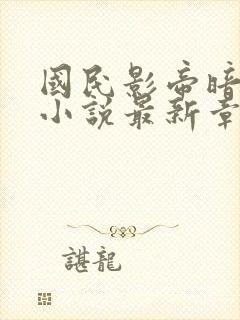 國民影帝暗
小說最新章
諶龍